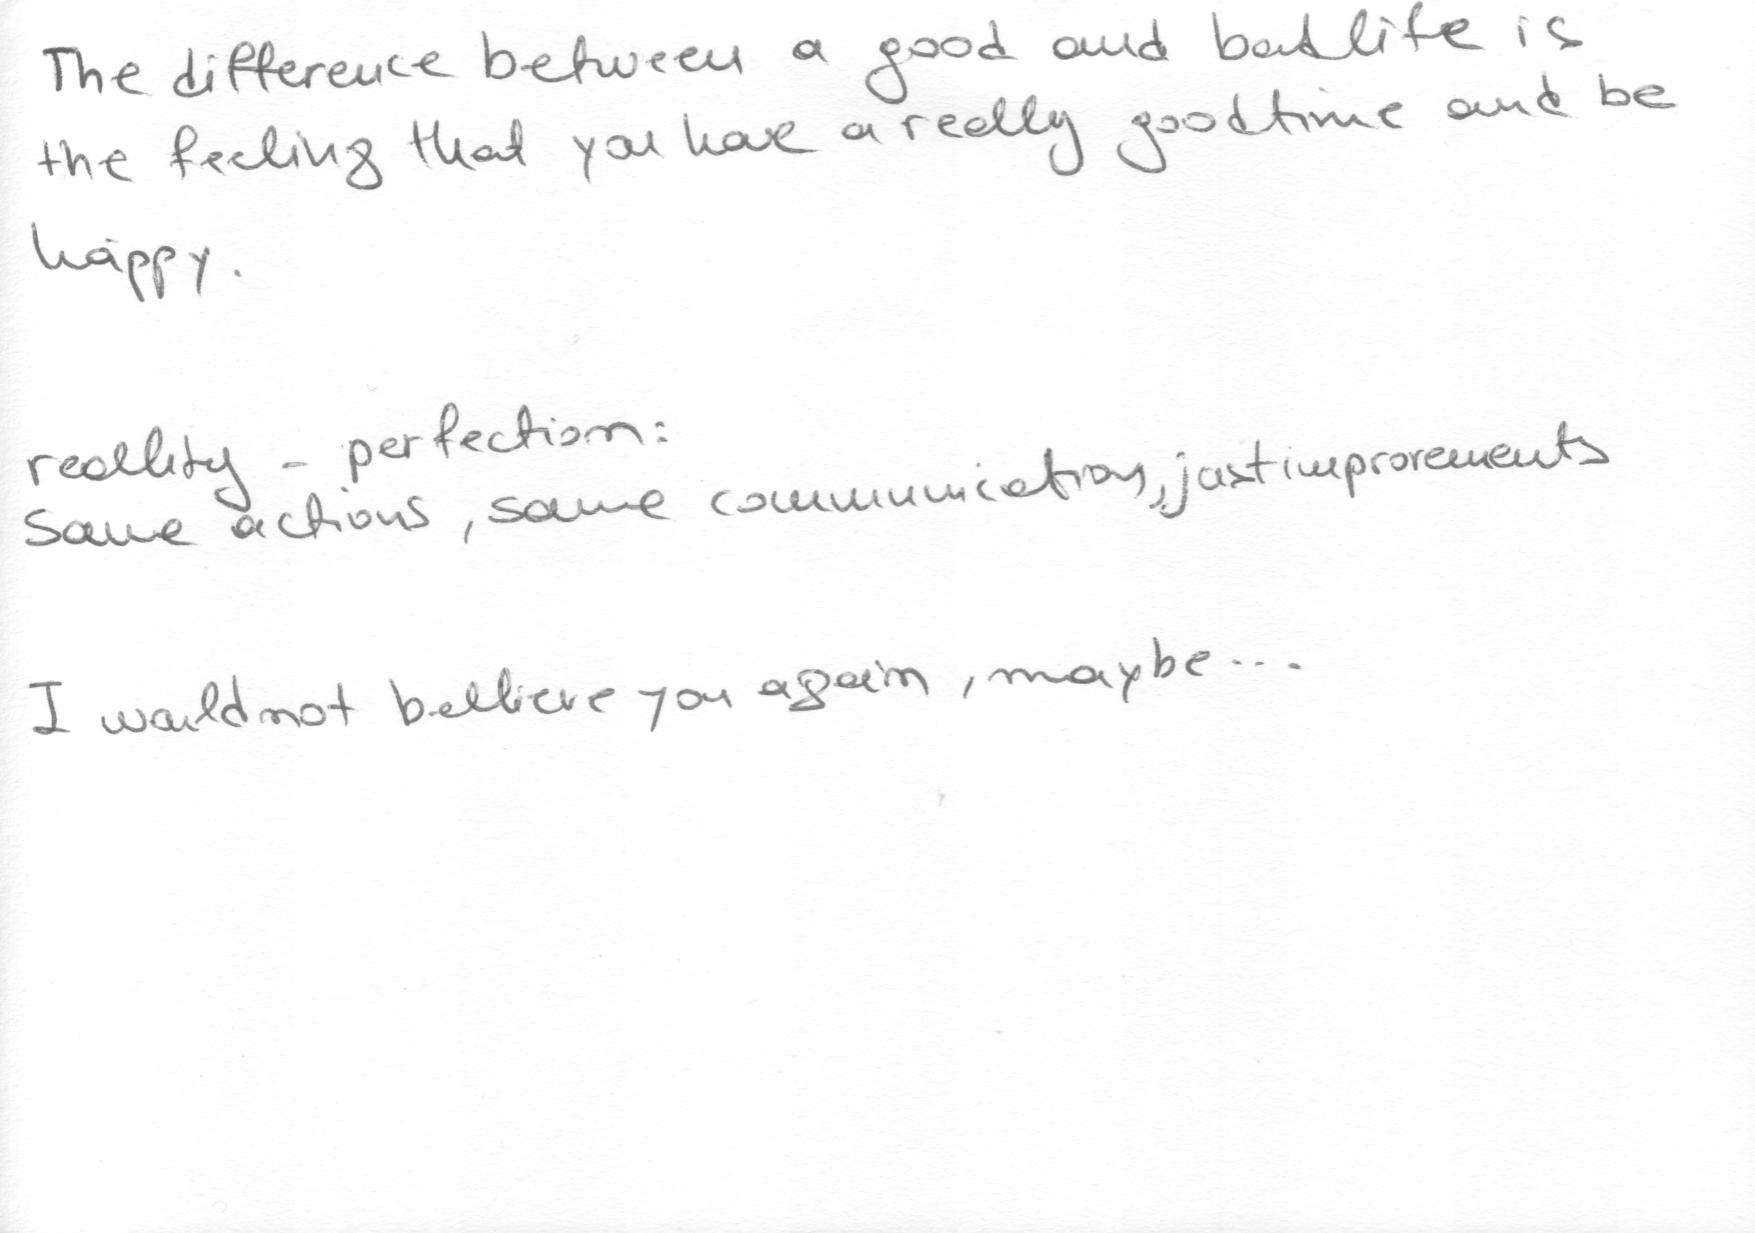 The difference between a good and bad life is
the feeling that you have a really good time and be
happy.
reallity - perfection:
Same actions, same communication, just improvements
I would not bellieve you again, maybe...